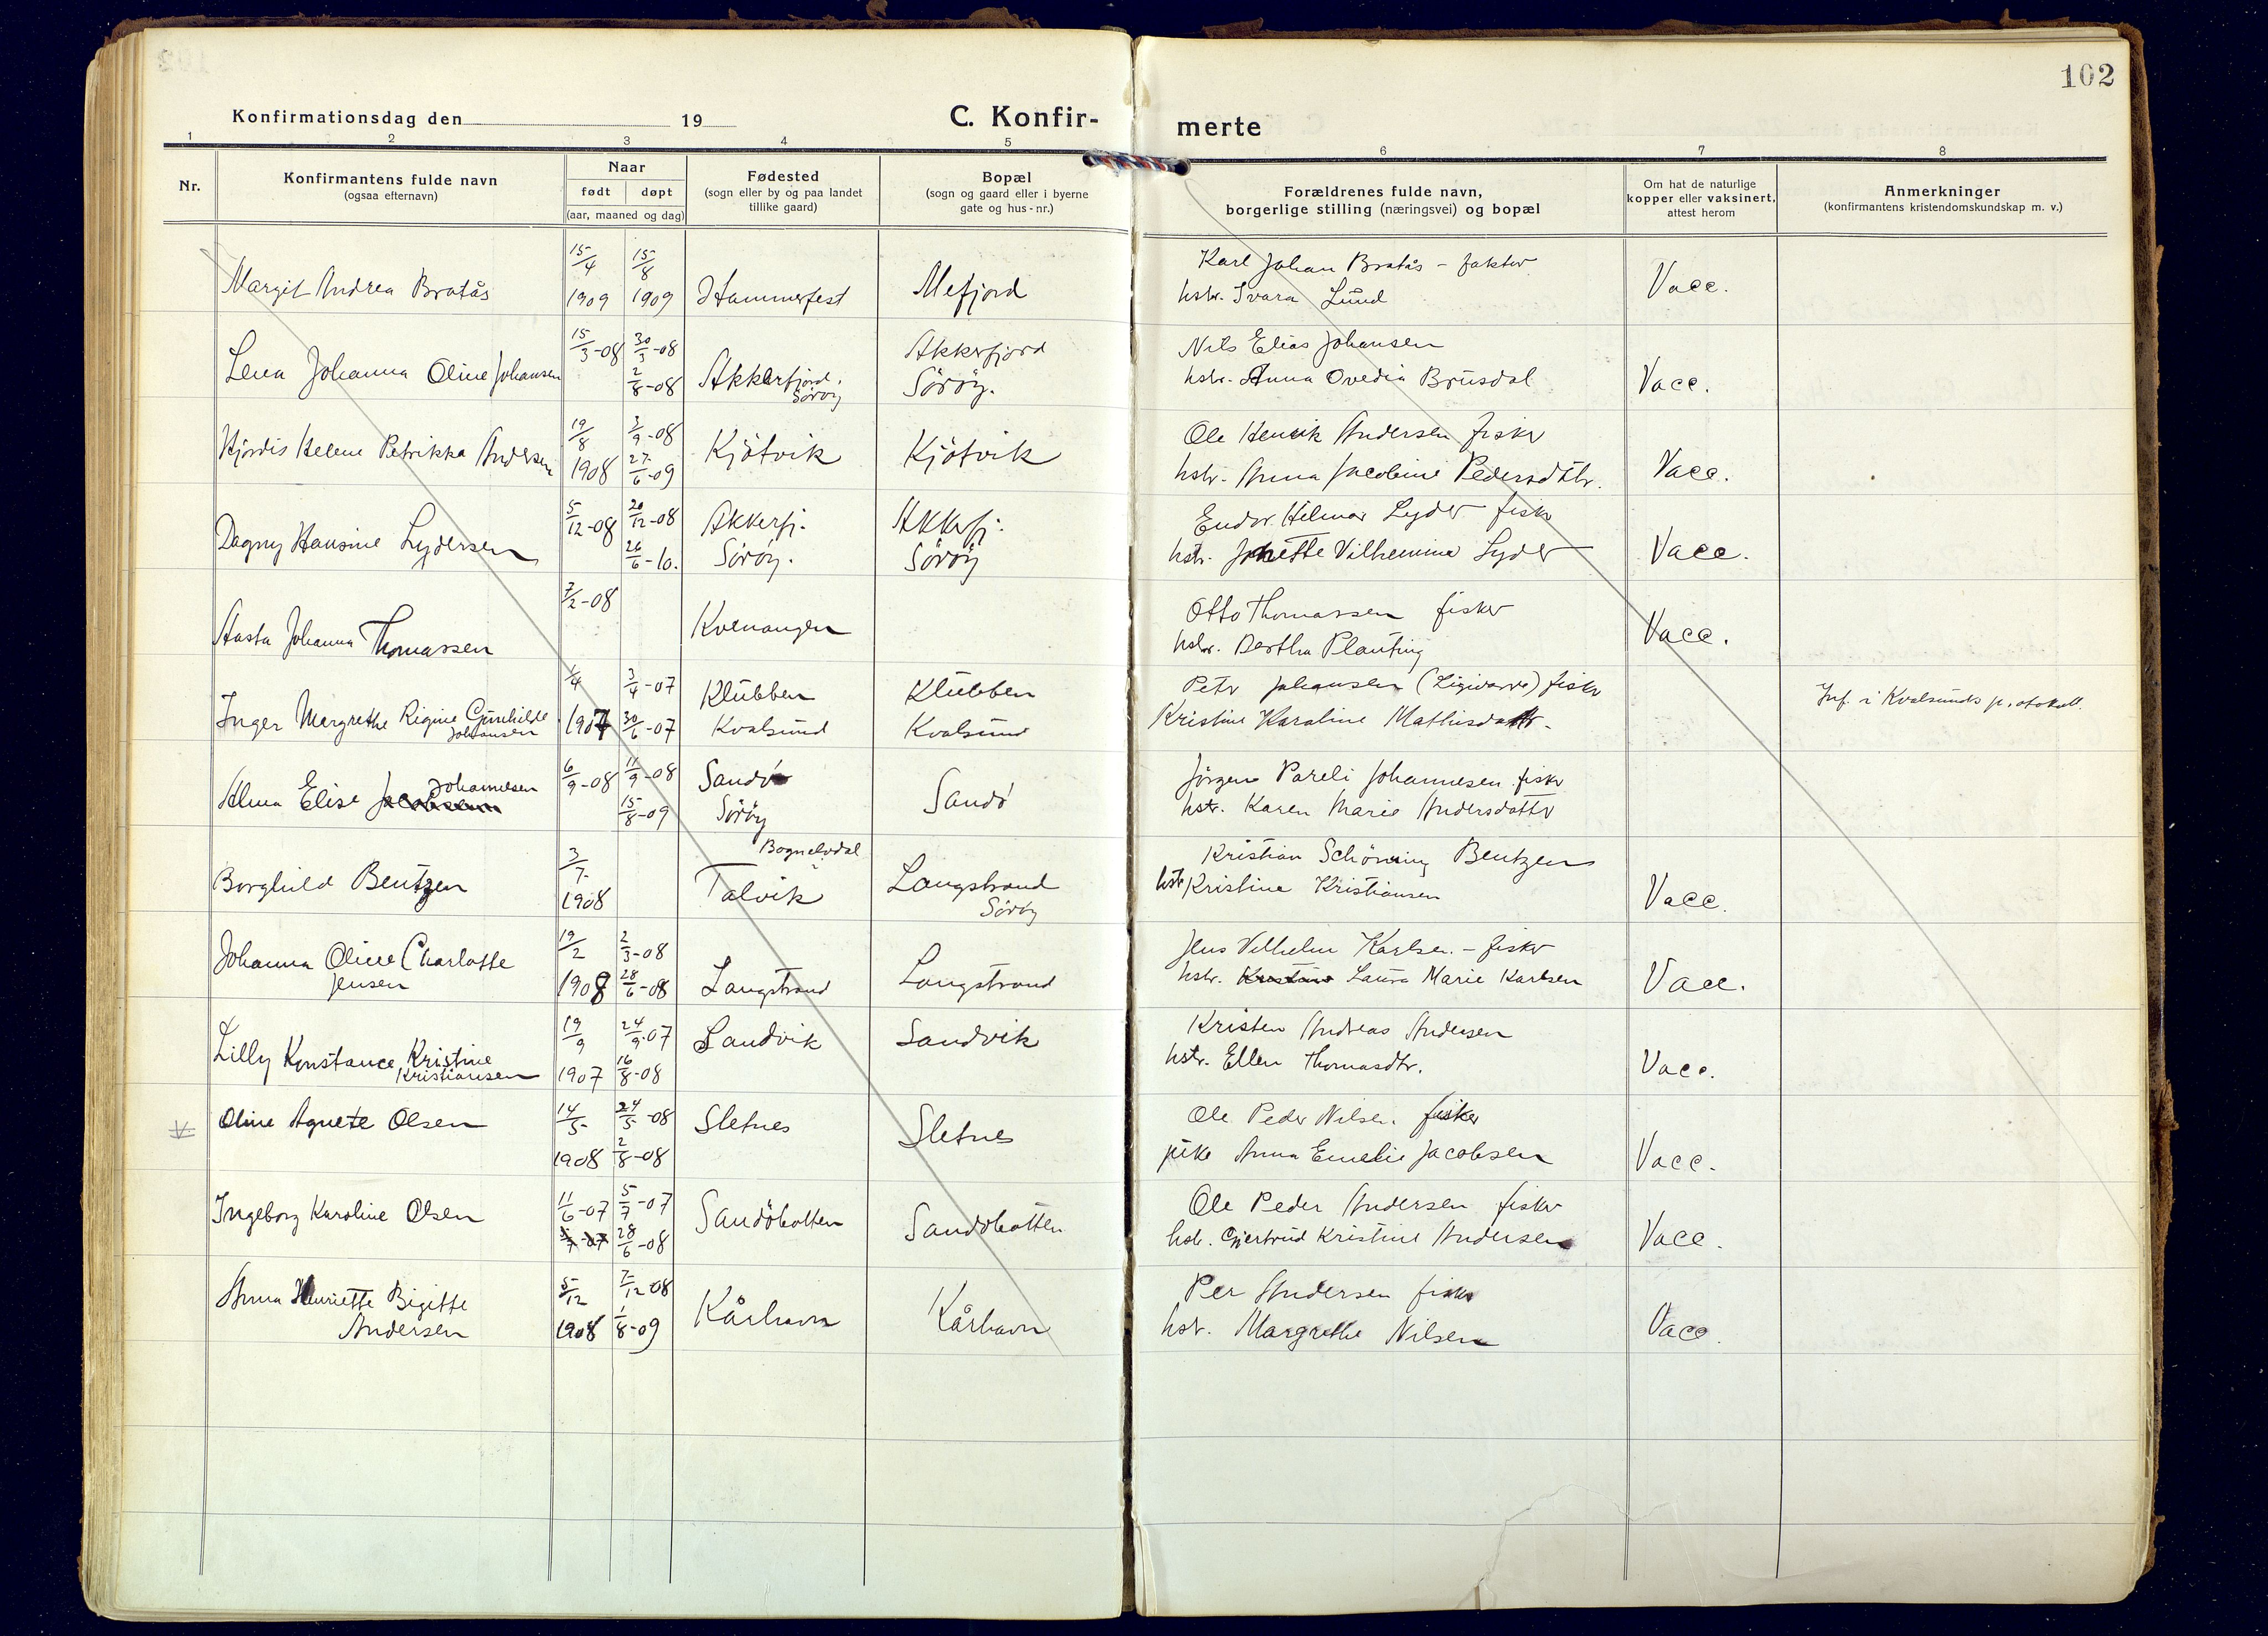 102
Konfirmationsdag den 19
C. Konfir-
merte
1 2 3 4 5 6 7 8
Nr.
Konfirmantens fulde navn
(ogsaa efternavn)
Naar
født døpt
(aar, maaned og dag)
Fødested
(sogn eller by og paa landet
tillike gaard)
Bopæl
(sogn og gaard eller i byerne
gate og hus-nr.)
Forældrenes fulde navn,
borgerlige stilling (næringsvei) og bopæl
Om hat de naturlige
kopper eller vaksinert,
attest herom
Anmerkninger
(konfirmantens kristendomskundskap m. v.)
15/4 15/8 Karl Johan Bratås - faktor
Margit Andrea Bratås 1909 1909 Hammerfest Mefjord hstr. Svara Lund Vacc.
15/3-08 30/3-08 Akkerfjord Nils Elias Johansen
Lena Johanna Oline Johansen 2/8-08 Akkerfjord. Sörøy Sörøy. hstr. Anna Ovedia Brusdal Vacc.
19/8 3/9-08 Ole Henrik Andersen fisker
Hjördis Helene Petrikka Andersen 1908 27/6-09 Kjötvik Kjötvik hstr. Anna Jacobine Pedersdttr. Vacc.
5/12-08 20/12-08 Akkerfj. Akkerfj. Endor Hilmar Lyder fisk
Dagny Hansine Lydersen 26/6-10. Sörøy. Sörøy hstr. Jonette Vilhemine Lyder Vacc.
7/2-08 Kvenangen Otto Thomassen fisker
Aasta Johanna Thomassen hstr. Bertha Planting Vacc.
1/4 3/4-07 Klubben Klubben Petr Johansen (Ligivarre) fisker Inf. i Kvalsunds protokoll.
Inger Margrethe Regine Gunhilde Johansen 1907 30/6-07 Kvalsund Kvalsund Kristine Karoline Mathisdattr.
Johannesen 6/9-08 11/9-08 Sandö Jörgen Pareli Johannesen fisker
Alma Elise Jacobsen 15/8-09 Sörøy Sandö hstr. Karen Marie Andersdatter
3/7 Bognelvdal Kristian Schöning Bentzen
Borghild Bentzen 1908 Talvik Langstrand Sörøy hstr Kristine Kristiansen Vacc.
19/2 2/3-08 Jens Vilhelm Karlsen. - fisker
Johanna Oline Charlotte Jensen 1908 28/6-08 Langstrand Langstrand hstr. Kristine Laura Marie Karlsen Vacc.
19/9 24/9-07 Sandvik Sandvik Kristen Andreas Andersen
Lilly Konstance Kristine Kristiansen 1907 16/8-08 hstr. Ellen Thomasdtr. Vacc.
14/5 24/5-08 Ole Peder Nilsen. fisker
Oline Agnete Olsen 1908 2/8-08 Sletnes Sletnes pike Anna Emelie Jacobsen Vacc.
11/6-07 5/7-07 Ole Peder Andersen fisker
Ingeborg Karoline Olsen 5/7-07 28/6-08 Sandöbotten Sandöbotten hstr. Gjertrud Kristine Andersen Vacc.
5/12 7/12 08 Per Andersen fisker
Anna Henriette Bigitte Andersen 1908 1/8-09 Kårhavn Kårhavn hstr. Margrethe Nilsen Vacc.